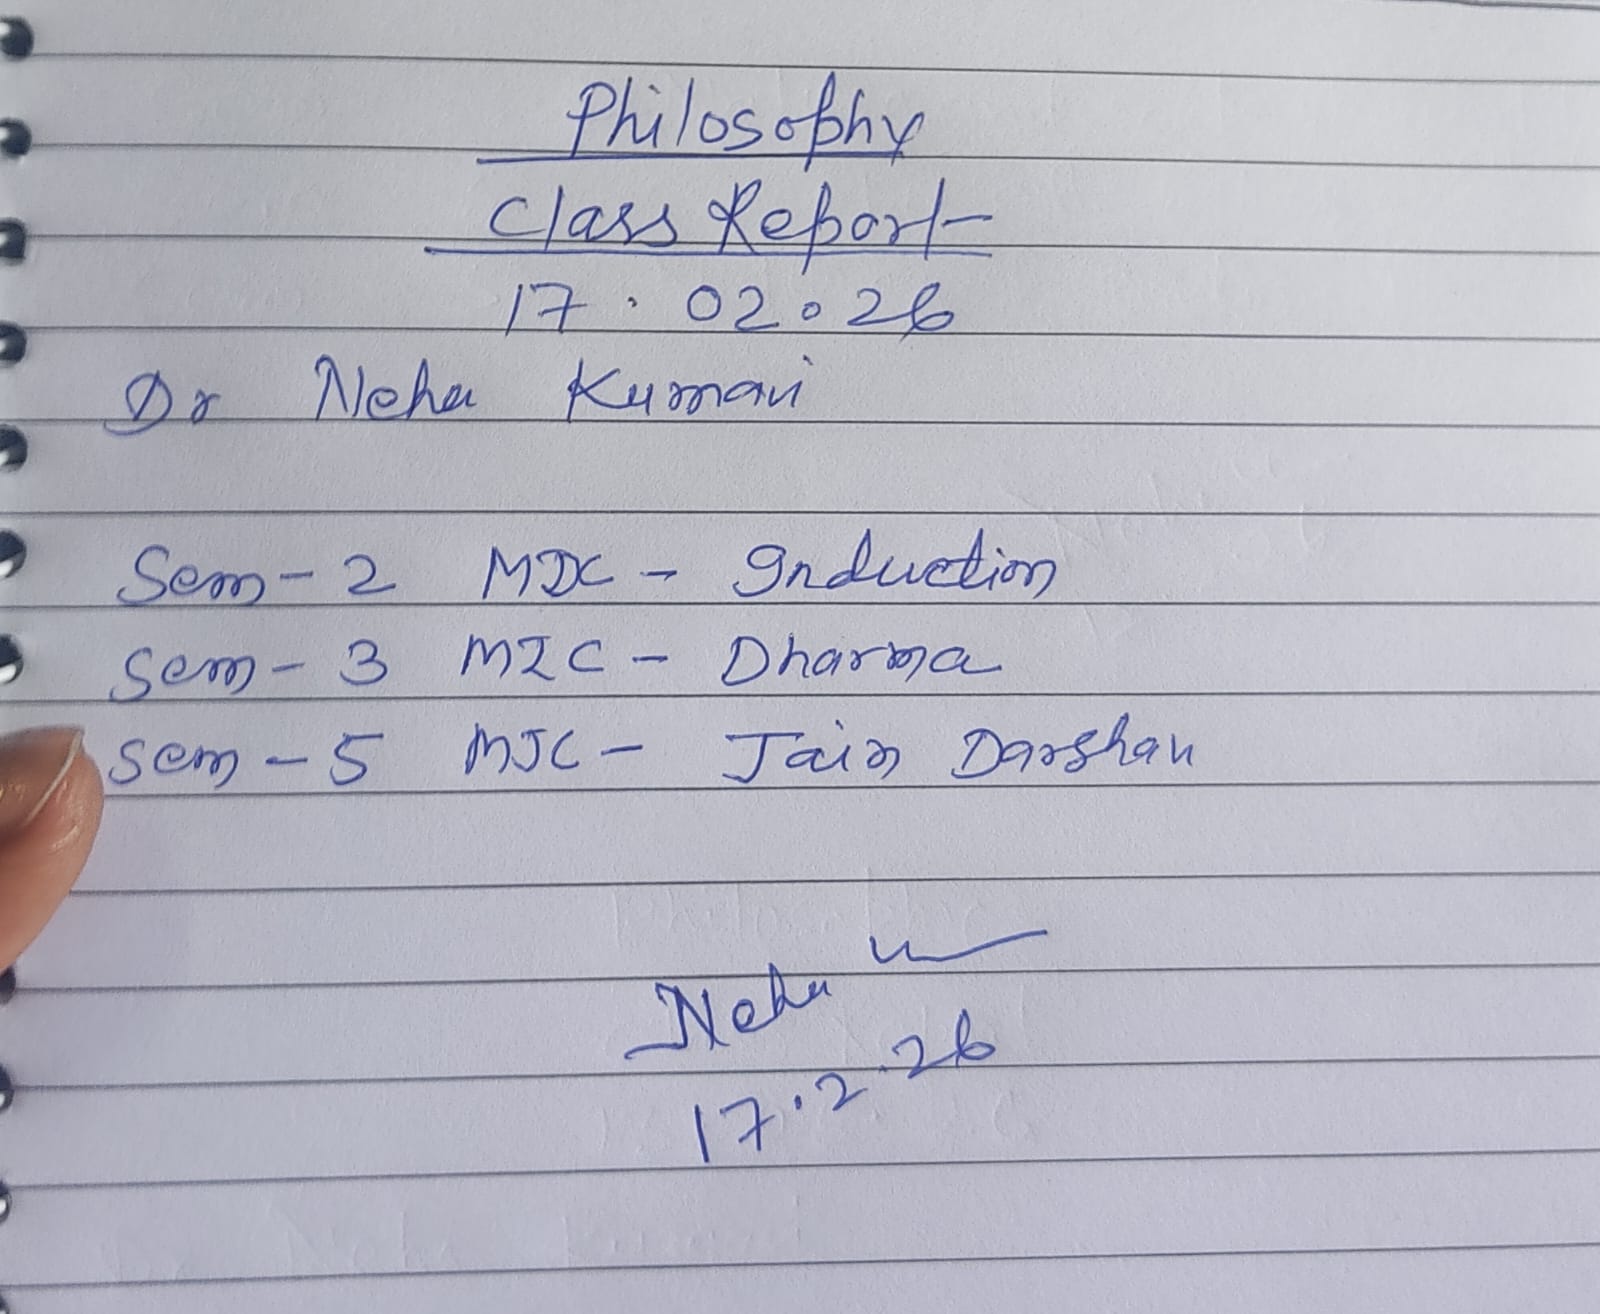 Philosophy
Class Report
17.02.26
Dr Neha Kumari
Sem-2 MDC - Induction
Sem-3 MIC - Dharma
Sem-5 MJC - Jain Darshan
Neha
17.2.26